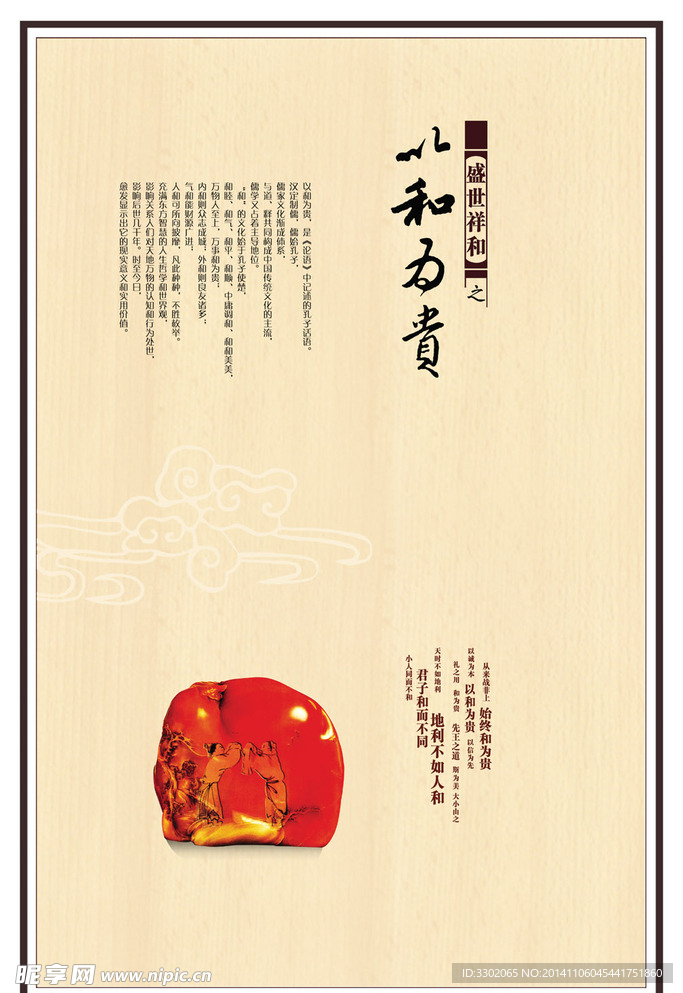 【盛世祥和】之
以和为貴
以和为贵，是《论语》中记述的孔子话语。
汉定制儒，儒始孔子，
儒家文化渐成体系，
与道、释共同构成中国传统文化的主流，
儒学又占着主导地位。
“和”的文化始于孔子使楚，
和睦、和气、和平、和顺、中庸调和、和和美美，
万物人至上，万事和为贵；
内和则众志成城；外和则良友诸多；
气和能财源广进；
人和可所向披靡，凡此种种，不胜枚举。
充满东方智慧的人生哲学和世界观，
影响关系人们对天地万物的认知和行为处世，
影响后世几千年。时至今日，
愈发显示出它的现实意义和实用价值。
从来战非上 始终和为贵
以诚为本 以和为贵 以信为先
礼之用 和为贵 先王之道 斯为美 大小由之
天时不如地利 地利不如人和
君子和而不同
小人同而不和
昵享网 www.nipic.cn
ID:3302065 NO:20141106045441751860